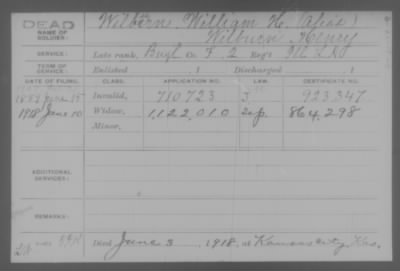 DEAD
NAME OF SOLDIER:
Wilborn, William H. (Alias)
Wilburn Henry
SERVICE:
Late rank, Bugl Co. F, 2 Reg't Ill. L.A.
TERM OF SERVICE:
Enlisted 1 Discharged 1
DATE OF FILING. CLASS. APPLICATION NO. LAW. CERTIFICATE NO.
1889 June 15 Invalid, 710723 J. 923,347
1918 June 10 Widow, 1,122,010 864,298
Minor,
ADDITIONAL SERVICES:
REMARKS:
Died June 3, 1918, at Kansas City, Kas.